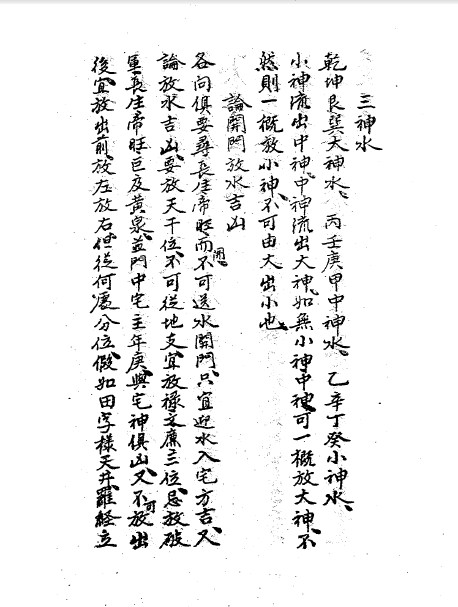 三神水
乾坤艮巽大神水、丙壬庚甲中神水、乙辛丁癸小神水、
小神流出中神、中神流出大神、如無小神中神可一概放大神、不
然則一概放小神、不可由大出小也、
論開門放水吉凶
各向俱要尋長生帝旺而開不可送水開門、只宜迎水入宅方吉、又
論放水吉凶、要放天干位、不可從地支、宜放祿文廉三位、忌放破
軍長生帝旺巨及黃泉、並門中宅主年庚與宅神俱凶、又不可放出
後、宜放出前、放左放右、但從何處分位、假如田字樣天井、羅經立